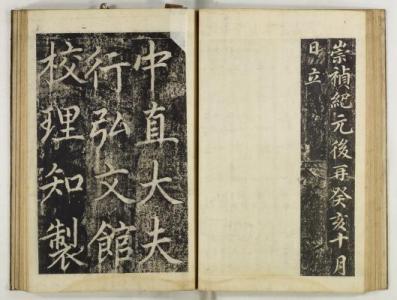 崇禎紀元後再癸亥十月
日立
中直大夫
行弘文館
校理知製